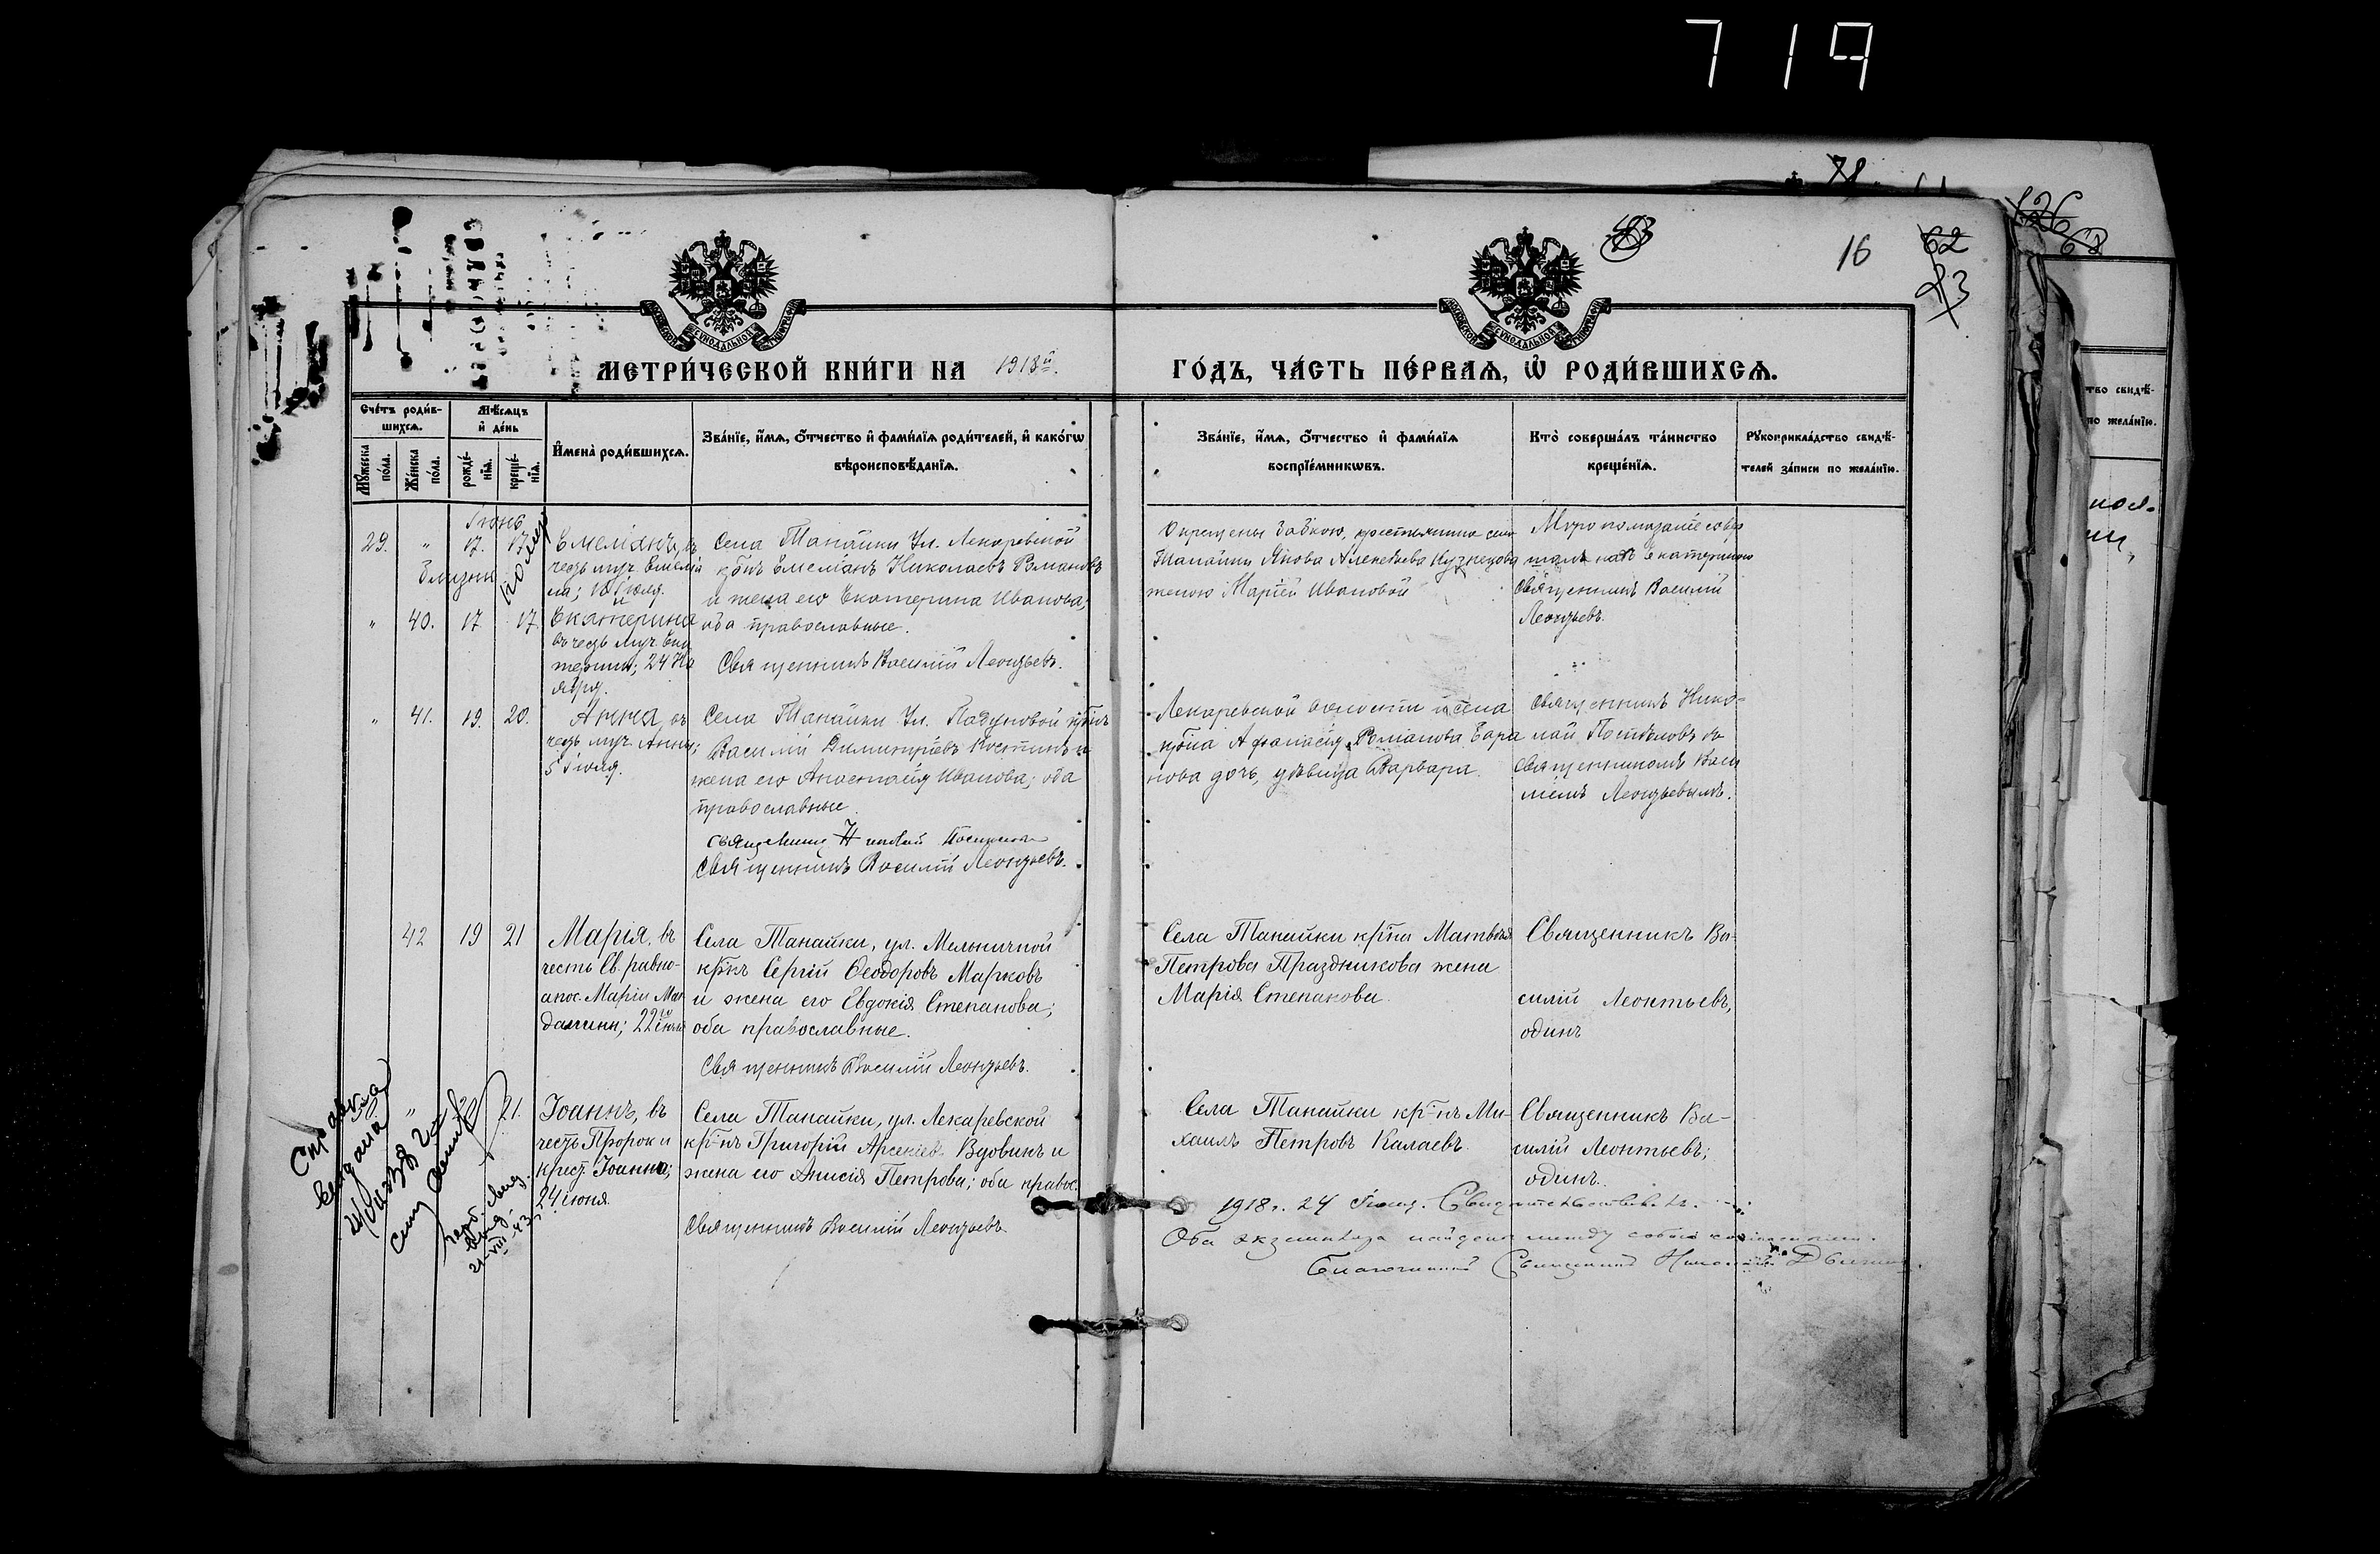 719
78.
126
62
16
62
МЕТРИ́ЧЕСКОЙ КНИ́ГИ НА 1918й.
ГО́ДЪ, ЧА́СТЬ ПЕ́РВАѦ, Ѡ҆ РОДИ́ВШИХСѦ.
Сче́тъ роди́в-
шихсѧ.
Мѣ́сѧцъ
и҆ де́нь
Мꙋ́жеска по́ла.
Же́нска по́ла.
рожде́-
нїѧ.
креще́-
нїѧ.
И҆мена̀ роди́вшихсѧ.
Зва́нїе, и҆́мѧ, ѻ҆́тчество и҆ фами́лїѧ роди́телей, и҆ како́гѡ
вѣроисповѣ́данїѧ.
Зва́нїе, и҆́мѧ, ѻ҆́тчество и҆ фами́лїѧ
воспрїе́мникѡвъ.
Кто̀ соверша́лъ та́инство
креще́нїѧ.
Рꙋкоприкла́дство свидѣ́-
телей за́писи по жела́нїю.
Іюнь
29. " 17. 17
Емеліанъ, въ
честь муч. Емелiа
на; 18 Іюля.
Близн
Села Танайки Ул. Лекаревской
крнъ Емеліанъ Николаевъ Романовъ
и жена его Екатерина Иванова;
оба православные.
Священникъ Василій Леонтьевъ.
Окрещены бабкою, крестьянина села
Танайки Якова Алексѣева Кузнецова
женою Маріей Ивановой
Мѵропомазаніе совер
шалъ надъ Екатериною
Священникъ Василій
Леонтьевъ.
" 40. 17. 17.
Екатерина
въ честь Муч. Ека
терины; 24 Но
ября.
" 41. 19. 20.
Анна, въ
честь муч. Анны;
5 Іюля.
Села Танайки Ул. крнъ
Василій Димитріевъ Костинъ и
жена его Анастасія Иванова; оба
православные.
Священникъ Николай
Священникъ Василій Леонтьевъ.
Лекаревской волости и села
крна Аѳанасія Романова Бара
нова дочь, дѣвица Варвара.
Священникъ Нико-
лай Поспѣловъ съ
Священникомъ Васи
ліемъ Леонтьевымъ.
42 19 21
Марія, въ
честь Св. равно-
апос. Маріи Маг
далины; 22го іюля
Села Танайки, ул. Мельничной
кр-нъ Сергій Ѳеодоровъ Марковъ
и жена его Евдокія Степанова;
оба православные.
Священникъ Василій Леонтьевъ.
Села Танайки кр-на Матвѣя
Петрова Праздникова жена
Марія Степанова.
Священникъ Ва-
силій Леонтьевъ,
одинъ
" 21.
Іоаннъ, въ
честь Пророк и
крест. Іоанна;
24 іюня
Села Танайки, ул. Лекаревской
кр-нъ Григорій Арсеніевъ Вдовинъ и
жена его Анисія Петрова; оба правос.
Священникъ Василій Леонтьевъ.
Села Танайки кр-нъ Ми-
хаилъ Петровъ Калаевъ.
Священникъ Ва-
силій Леонтьевъ;
одинъ.
Справка
выдана
1918г. 24 Свидѣтельствовалъ.
Оба экземпляра найдены между собою
Благочинный Священникъ Николай
тво свидѣ-
по жела́нїю.